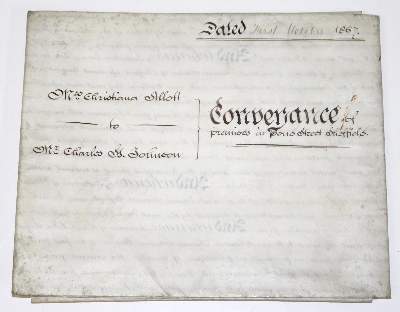 Dated First October 1867.
Mrs Christiana Allott
to
Mr. Charles H. Johnson
Conveyance of
premises in Street Sheffield.